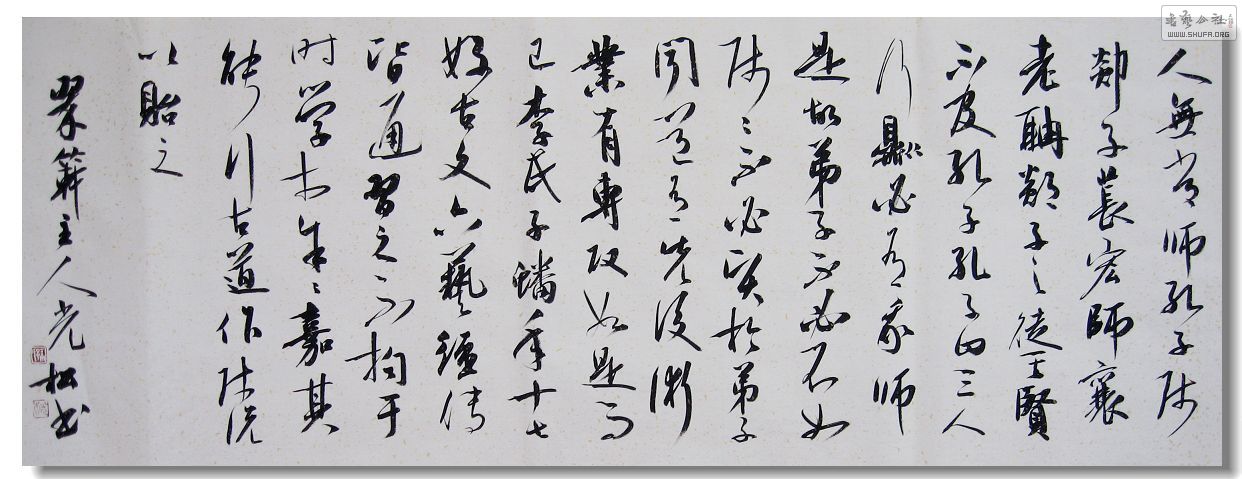 人無常师孔子师
郯子萇宏師襄
老聃郯子之徒其賢
不及孔子孔子曰三人
行則必有我师
是故弟子不必不如
师々不必贤於弟子
聞道有先後術
業有專攻如是而
已李氏子蟠年十七
好古文六藝經傳
皆通習之不拘于
时学於余々嘉其
能行古道作师说
以貽之
主人光松书
WWW.SHUFA.ORG